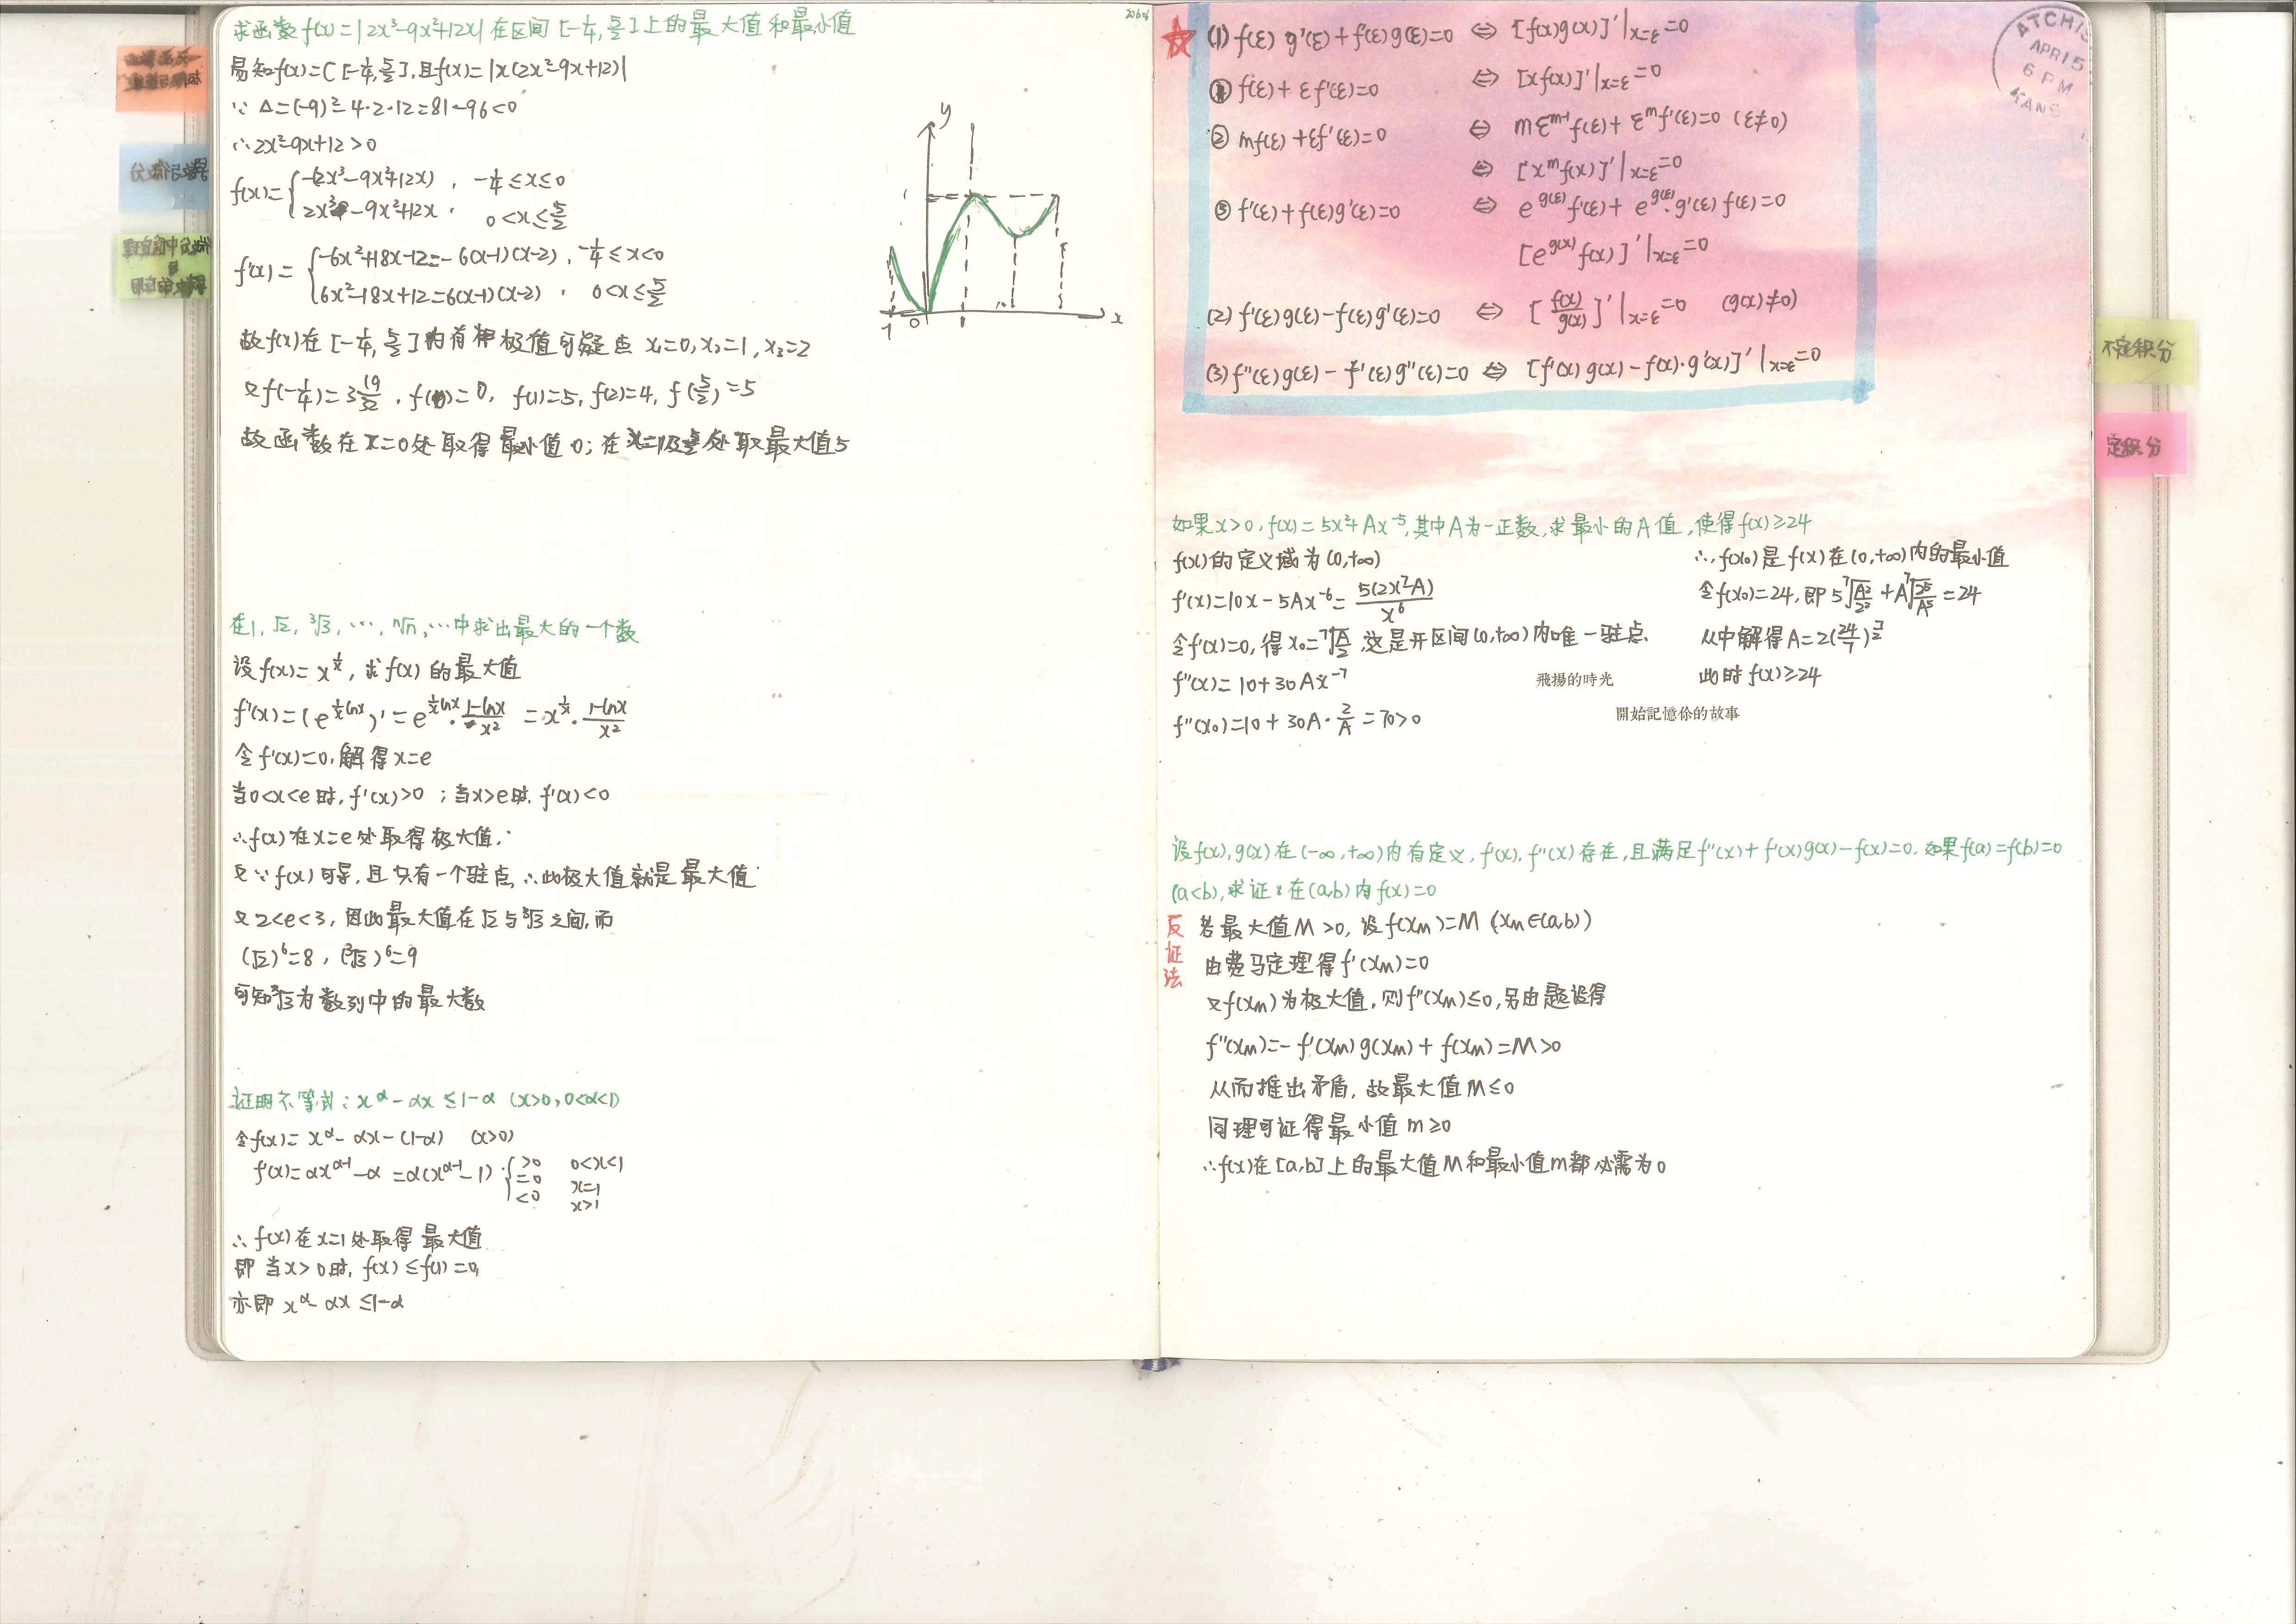 求函数 f(x)=|2x³-9x²+12x| 在区间 [-1/4, 5/2] 上的最大值和最小值
易知f(x)=C[-1/4, 5/2], 且f(x)=|x(2x²-9x+12)|
∵ Δ=(-9)²-4·2·12=81-96<0
∴2x²-9x+12>0
f(x)={-(2x³-9x²+12x), -1/4≤x≤0
2x³-9x²+12x, 0<x≤5/2
f'(x)={-6x²+18x-12=-6(x-1)(x-2), -1/4≤x<0
6x²-18x+12=6(x-1)(x-2), 0<x≤5/2
故f(x)在[-1/4, 5/2]内有极值可疑点 x₁=0, x₂=1, x₃=2
又f(-1/4)=3 19/32, f(0)=0, f(1)=5, f(2)=4, f(5/2)=5
故函数在x=0处取得最小值0; 在x=1及5/2处取最大值5
y
x
0
在1, √2, ³√3, …, ⁿ√n, …中求出最大的一个数
设f(x)=x^(1/x), 求f(x)的最大值
f'(x)=(e^(1/x lnx))'=e^(1/x lnx)·(1-lnx)/x² =x^(1/x)·(1-lnx)/x²
令f'(x)=0, 解得x=e
当0<x<e时, f'(x)>0 ; 当x>e时, f'(x)<0
∴f(x)在x=e处取得极大值.
又∵f(x)可导, 且只有一个驻点, ∴此极大值就是最大值
又2<e<3, 因此最大值在√2与³√3之间, 而
(√2)⁶=8, (³√3)⁶=9
可知³√3为数列中的最大数
证明不等式: x^α-αx≤1-α (x>0, 0<α<1)
令f(x)=x^α-αx-(1-α) (x>0)
f(x)=αx^(α-1)-α=α(x^(α-1)-1) {>0 0<x<1
=0 x=1
<0 x>1
∴f(x)在x=1处取得最大值
即当x>0时, f(x)≤f(1)=0,
亦即x^α-αx≤1-α
(1) f(ε)g'(ε)+f'(ε)g(ε)=0 ⇔ [f(x)g(x)]'|x=ε=0
① f(ε)+εf'(ε)=0 ⇔ [xf(x)]'|x=ε=0
② mf(ε)+εf'(ε)=0 ⇔ mε^(m-1)f(ε)+ε^m f'(ε)=0 (ε≠0)
⇔ [x^m f(x)]'|x=ε=0
③ f'(ε)+f(ε)g'(ε)=0 ⇔ e^g(ε) f'(ε)+e^g(ε)·g'(ε)f(ε)=0
[e^g(x) f(x)]'|x=ε=0
(2) f'(ε)g(ε)-f(ε)g'(ε)=0 ⇔ [f(x)/g(x)]'|x=ε=0 (g(x)≠0)
(3) f''(ε)g(ε)-f'(ε)g''(ε)=0 ⇔ [f'(x)g(x)-f(x)·g'(x)]'|x=ε=0
ATCHIS
APR 15
6 PM
KANS
不定积分
定积分
如果x>0, f(x)=5x²+Ax⁻⁵, 其中A为一正数, 求最小的A值, 使得f(x)≥24
f(x)的定义域为(0,+∞)
f'(x)=10x-5Ax⁻⁶=5(2x⁷-A)/x⁶
令f'(x)=0, 得x₀=⁷√(A/2) 这是开区间(0,+∞)内唯一驻点.
f''(x)=10+30Ax⁻⁷
f''(x₀)=10+30A·2/A=70>0
∴f(x₀)是f(x)在(0,+∞)内的最小值
令f(x₀)=24, 即5⁷√(A²/2²)+A⁷√(2⁵/A⁵)=24
从中解得A=2(24/7)^(7/2)
此时f(x)≥24
飛揚的時光
開始記憶你的故事
设f(x), g(x)在(-∞,+∞)内有定义, f'(x), f''(x)存在, 且满足f''(x)+f'(x)g(x)-f(x)=0. 如果f(a)=f(b)=0
(a<b), 求证: 在(a,b)内f(x)=0
反证法
若最大值M>0, 设f(xM)=M (xM∈(a,b))
由费马定理得f'(xM)=0
又f(xM)为极大值, 则f''(xM)≤0, 另由题设得
f''(xM)=-f'(xM)g(xM)+f(xM)=M>0
从而推出矛盾, 故最大值M≤0
同理可证得最小值m≥0
∴f(x)在[a,b]上的最大值M和最小值m都必需为0